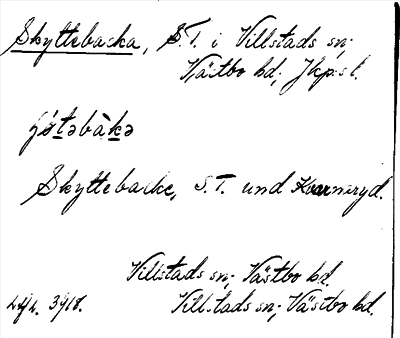 Skyttebacka, S.T. i Villstads sn;
Västbo hd; Jkp.s l.
Skyttebacke, S.T. und Kvarnaryd.
Villstads sn; Västbo hd.
Villstads sn; Västbo hd.